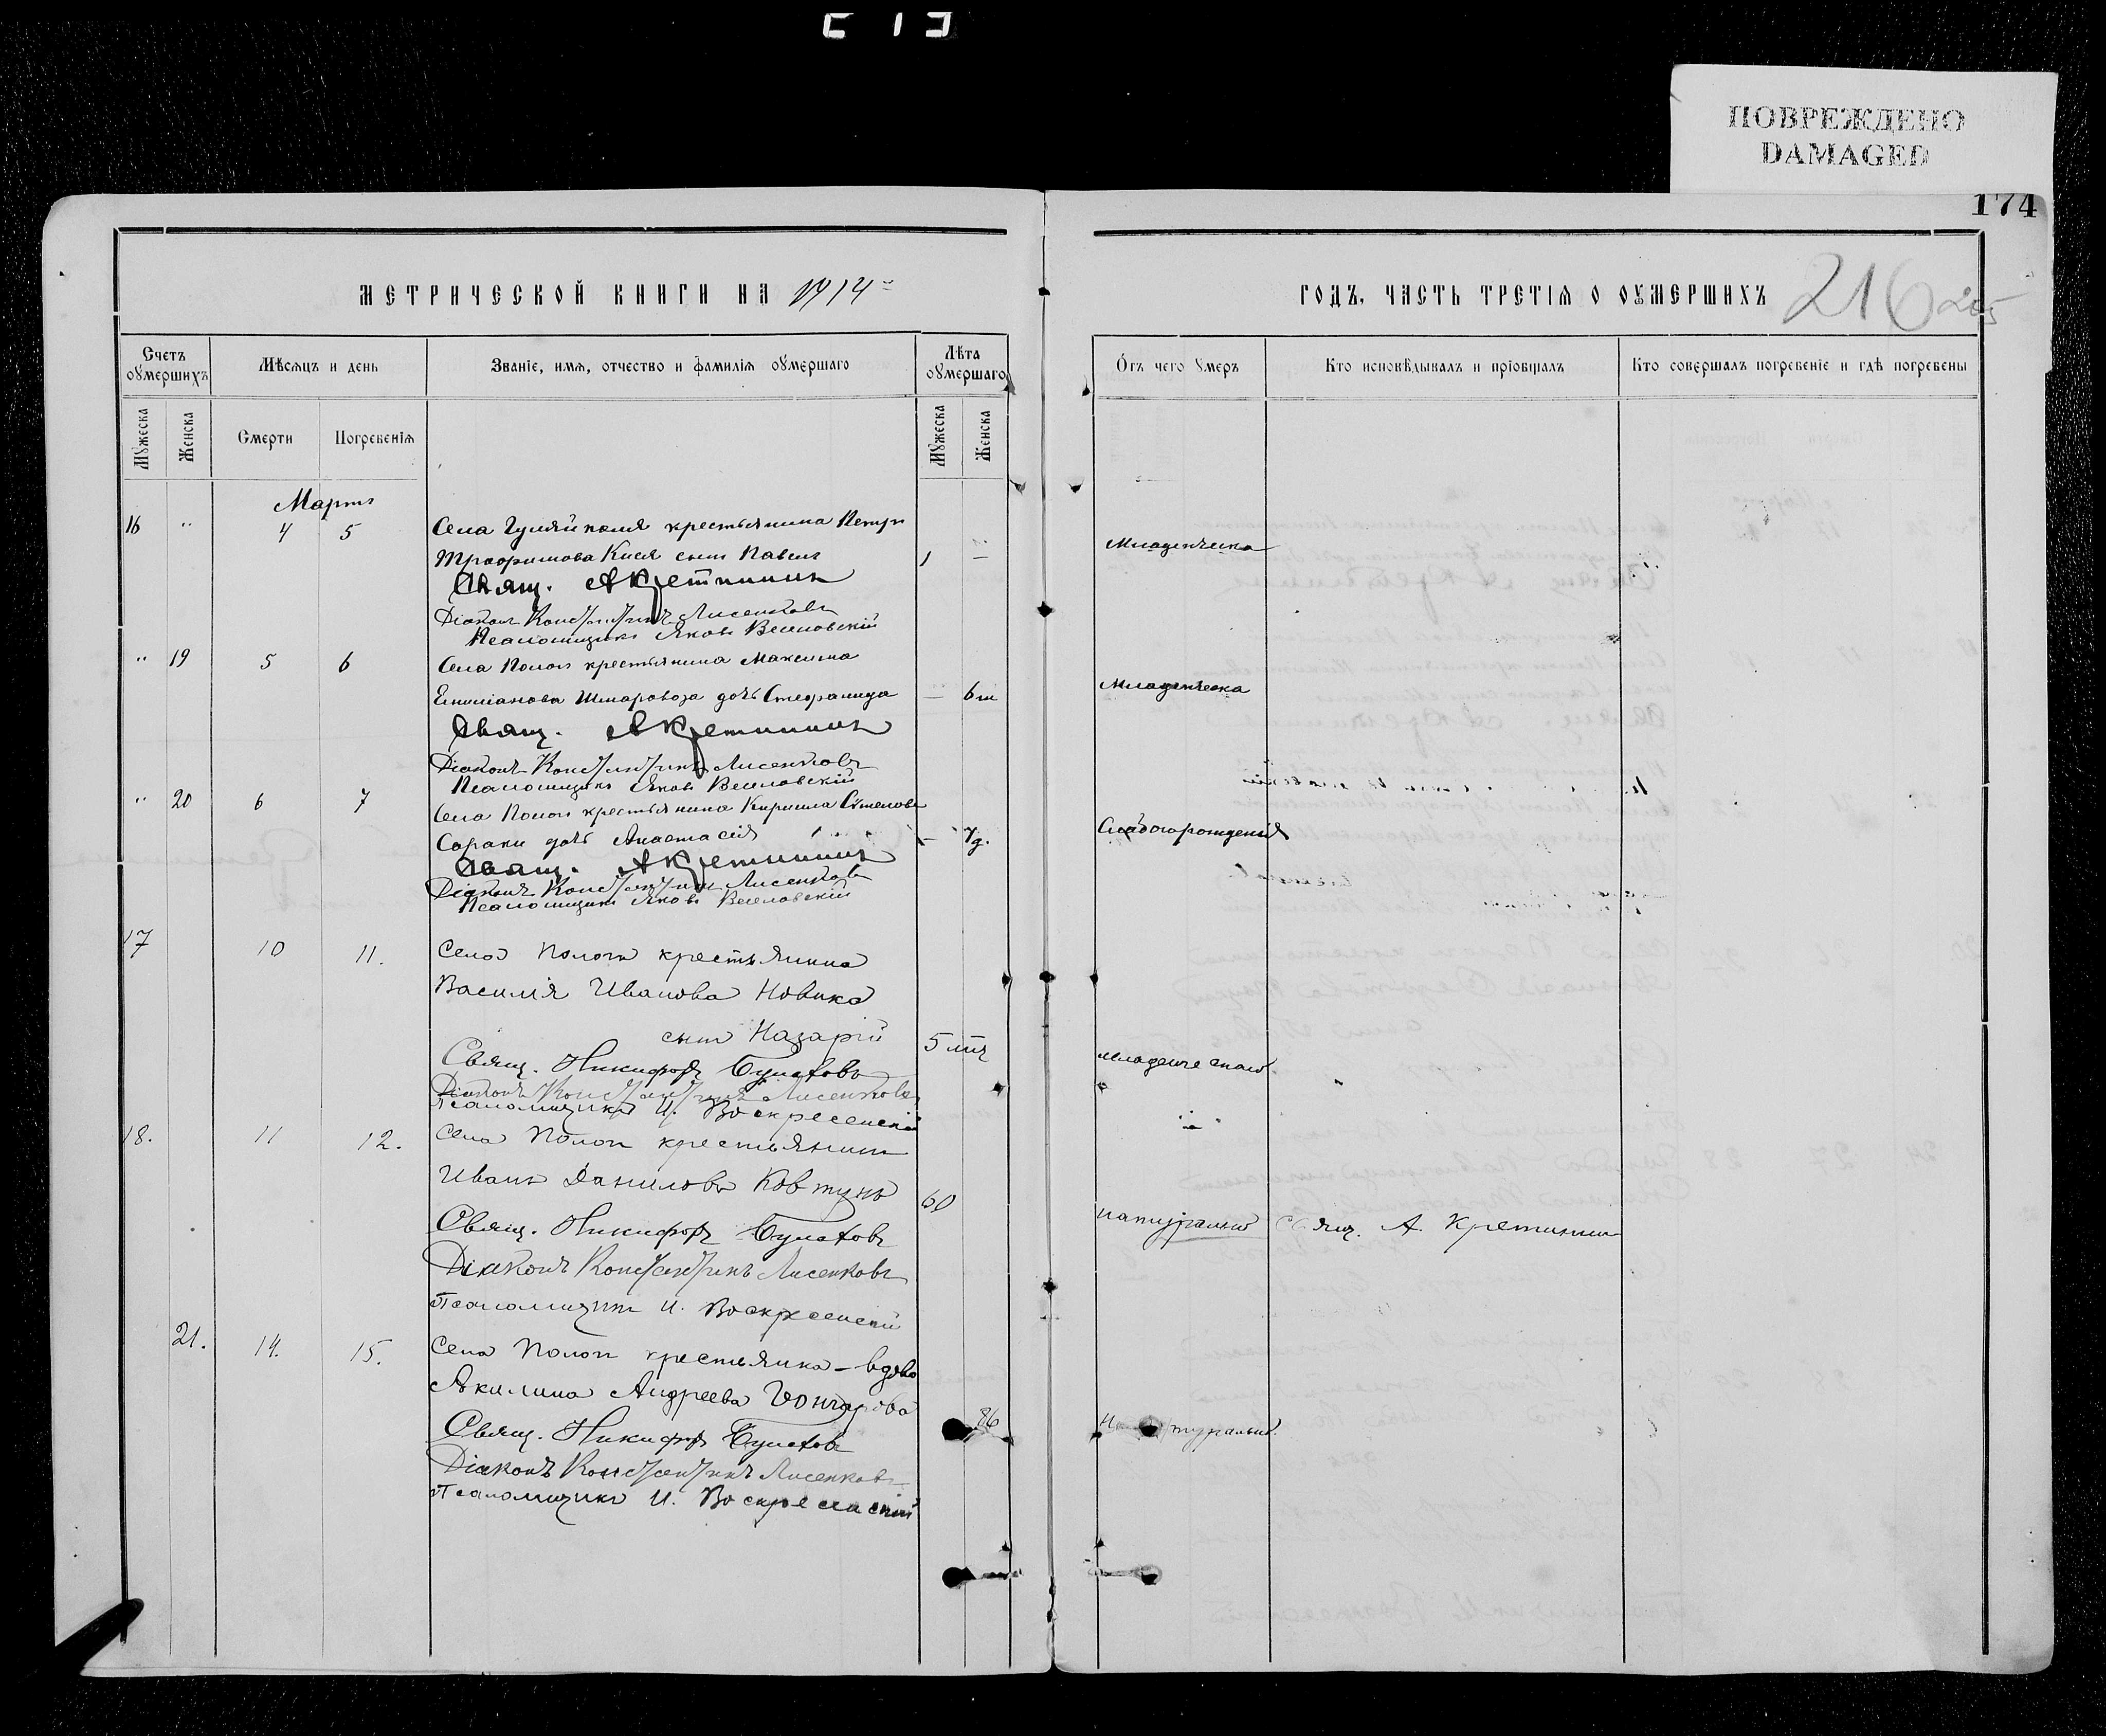 ПОВРЕЖДЕНО
DAMAGED
174
МЕТРИЧЕСКОЙ КНИГИ НА 1914
ГОДЪ, ЧАСТЬ ТРЕТІЯ О ОУМЕРШИХЪ
216
205
Счетъ оумершихъ
Мѣсяцъ и день
Званіе, имя, отчество и фамилія оумершаго
Лѣта оумершаго
Отъ чего умеръ
Кто исповѣдывалъ и пріобщалъ
Кто совершалъ погребеніе и гдѣ погребены
Мужеска
Женска
Смерти
Погребенія
Мужеска
Женска
Мартъ
16 " 4 5 Села Гуляйполя крестьянина Петра
Трофимова Кися сынъ Павелъ 1 — Младенческа
Свящ. А Кретининъ
Діаконъ Константинъ Лисенковъ
Псаломщикъ Яковъ Веселовскій
" 19 5 6 Села Пологъ крестьянина Максима
Емиліанова Шмаровоза дочь Стефанида — 6 м Младенческа
Свящ. А Кретининъ
Діаконъ Константинъ Лисенковъ
Псаломщикъ Яковъ Веселовскій
" 20 6 7 Села Пологъ крестьянина Кирилла
Сораки дочь Анастасія — 7 д. Слабого рожденія
Свящ. А Кретининъ
Діаконъ Константинъ Лисенковъ
Псаломщикъ Яковъ Веселовскій
17 10 11. Села Пологъ крестьянина
Василія Иванова Новика
сынъ Назарій 5 младенческой
Свящ. Никифоръ Булатовъ
Діаконъ Константинъ Лисенковъ
Псаломщикъ И. Воскресенскій
18. 11 12. Села Пологъ крестьянинъ
Иванъ Даниловъ Ковтунъ 60
Свящ. Никифоръ Булатовъ натуральной Свящ. А. Кретининъ
Діаконъ Константинъ Лисенковъ
Псаломщикъ И. Воскресенскій
21. 14. 15. Села Пологъ крестьянка - вдова
Акилина Андреева Гончарова
86 натуральной
Свящ. Никифоръ Булатовъ
Діаконъ Константинъ Лисенковъ
Псаломщикъ И. Воскресенскій